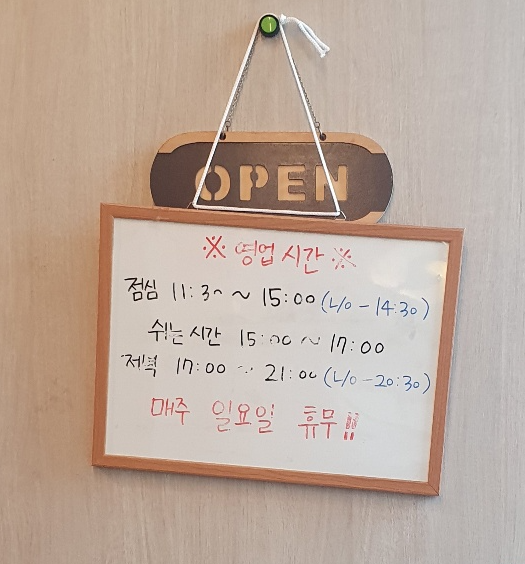 OPEN
※ 영업시간 ※
점심 11:30 ~ 15:00 (L/O - 14:30)
쉬는시간 15:00 ~ 17:00
제녁 17:00 ~ 21:00 (L/O - 20:30)
매주 일요일 휴무!!